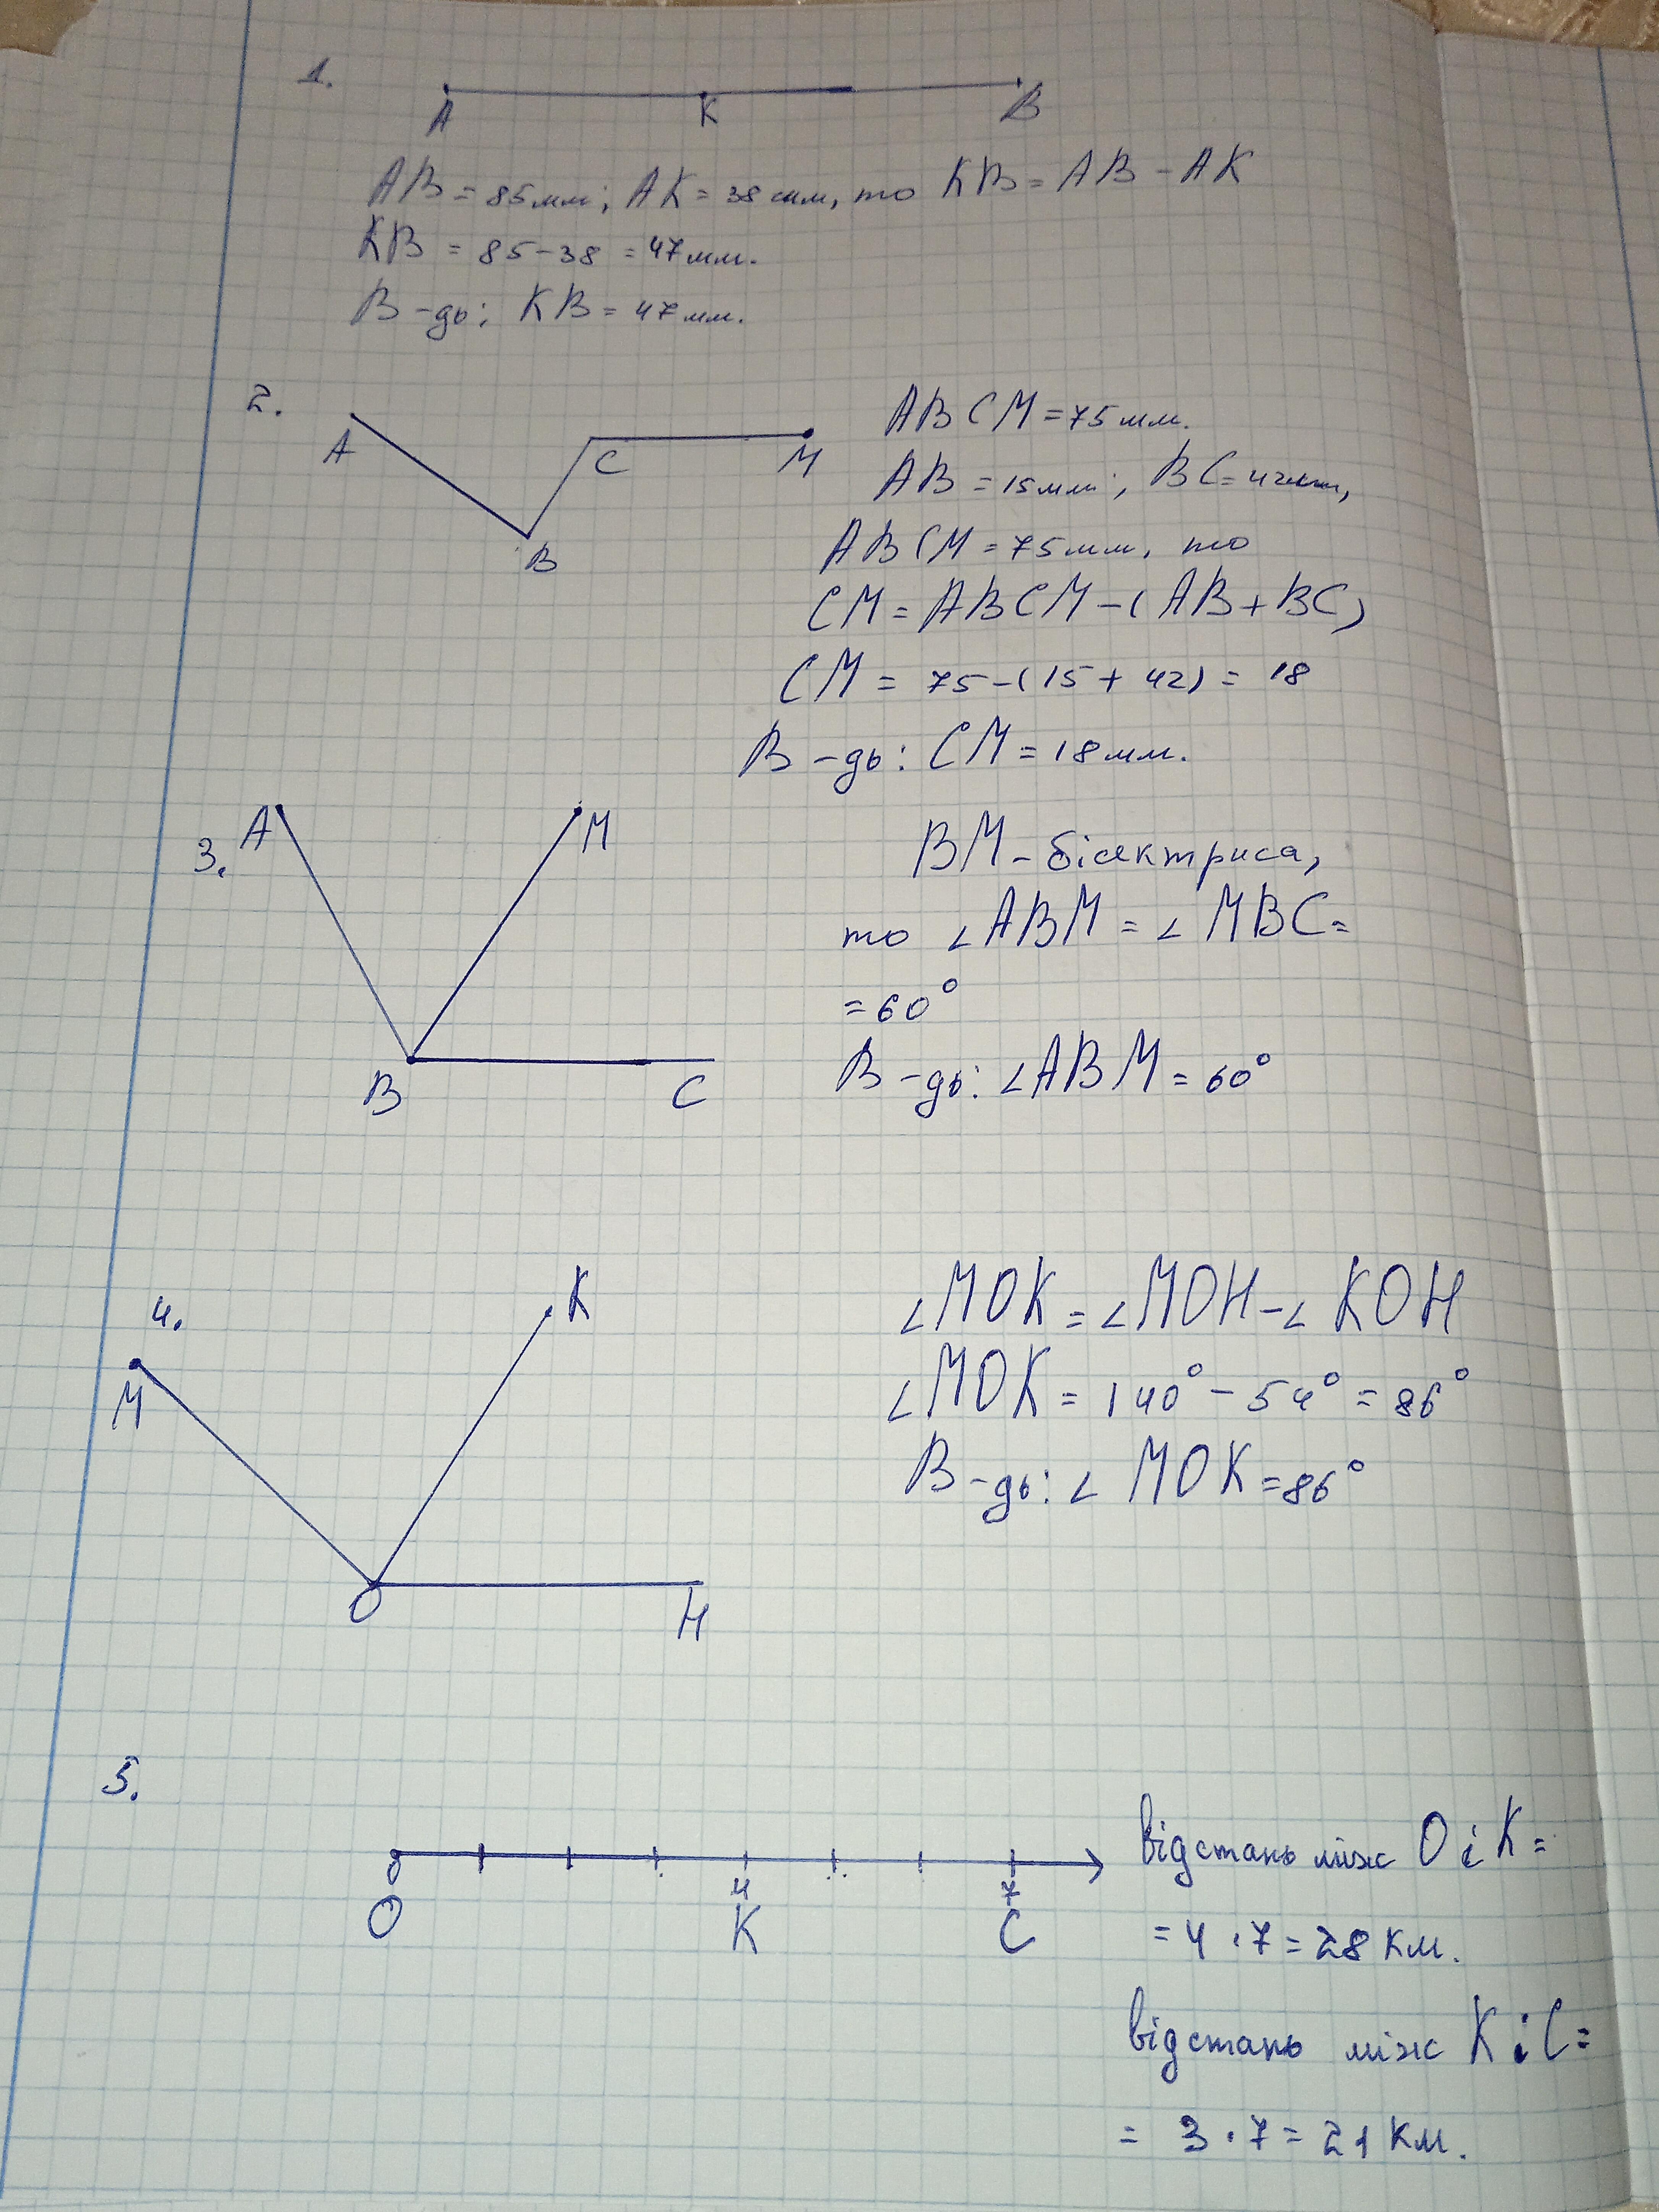 1.
A K B
AB = 85мм; AK = 38мм, то KB = AB - AK
KB = 85-38 = 47мм.
В-дь; KB = 47мм.
2.
A B C M
ABCM = 75мм.
AB = 15мм; BC = 42мм,
ABCM = 75мм, то
CM = ABCM - (AB + BC)
CM = 75-(15 + 42) = 18
В-дь: CM = 18мм.
3.
A M B C
BM - бісектриса,
то ∠ABM = ∠MBC =
= 60°
В-дь: ∠ABM = 60°
4.
M K O H
∠MOK = ∠MOH - ∠KOH
∠MOK = 140° - 54° = 86°
В-дь: ∠MOK = 86°
5.
0 4 7
O K C
відстань між O і K =
= 4 · 7 = 28 км.
відстань між K і C =
= 3 · 7 = 21 км.